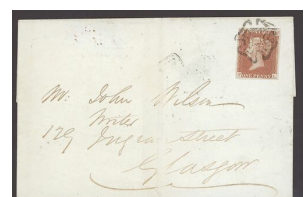 ONE PENNY
Mr. John Wilson
Writer
129 Ingram Street
Glasgow